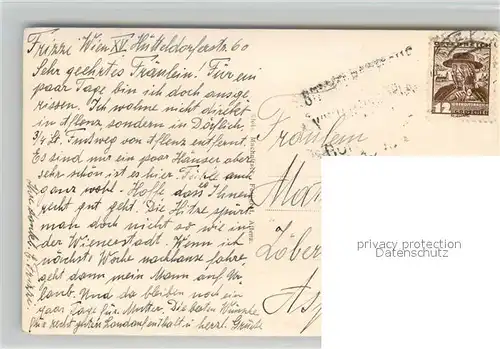 Frizzi Wien XV. Hütteldorferstr. 60
Sehr geehrtes Fräulein! Für ein
paar Tage bin ich doch ausge-
rissen. Ich wohne nicht direkt
in Aflenz, sondern in Dörflach,
3/4 St. Fußweg von Aflenz entfernt.
Es sind nur ein paar Häuser aber
sehr schön ist es hier. Fühle auch
ganz wohl. Hoffe dass es Ihnen
recht gut geht. Die Hitze spürt
man doch nicht so wie in
der Wienerstadt. Wenn ich
nächste Woche nachhause fahre,
geht dann mein Mann auf Ur-
laub. Und da bleiben noch ein
paar Tage für Mutter. Die besten Wünsche
für recht guten Landaufenthalt u. herzl. Grüße
Frizzi
Fräulein
ÖSTERREICH
12
privacy protection
Datenschutz